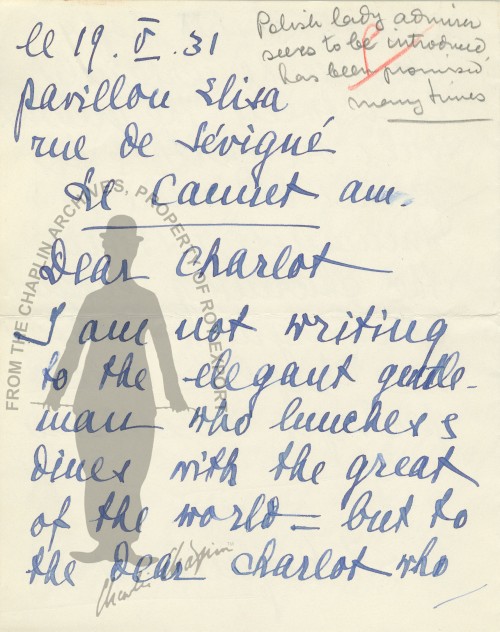 Polish lady admirer
seeks to be introduced
has been promised
many times
le 19. V. 31
pavillon Elisa
rue de Sévigné
Le Cannet am.
Dear Charlot
I am not writing
to the elegant gentle-
man who lunches &
dines with the great
of the world = but to
the dear Charlot who
FROM THE CHAPLIN ARCHIVES, PROPERTY OF ROY EXPORT
Charlie Chaplin